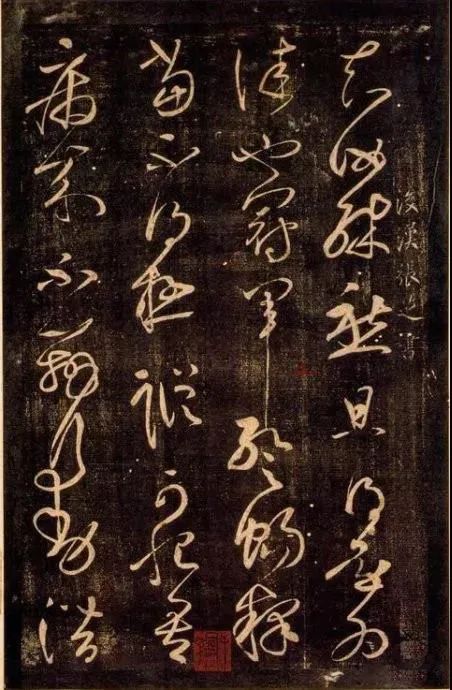 後漢張芝書
知汝殊愁且得還為
佳也冠軍暫暢釋
當不得極蹤可恨吾
病來不辦行動潛